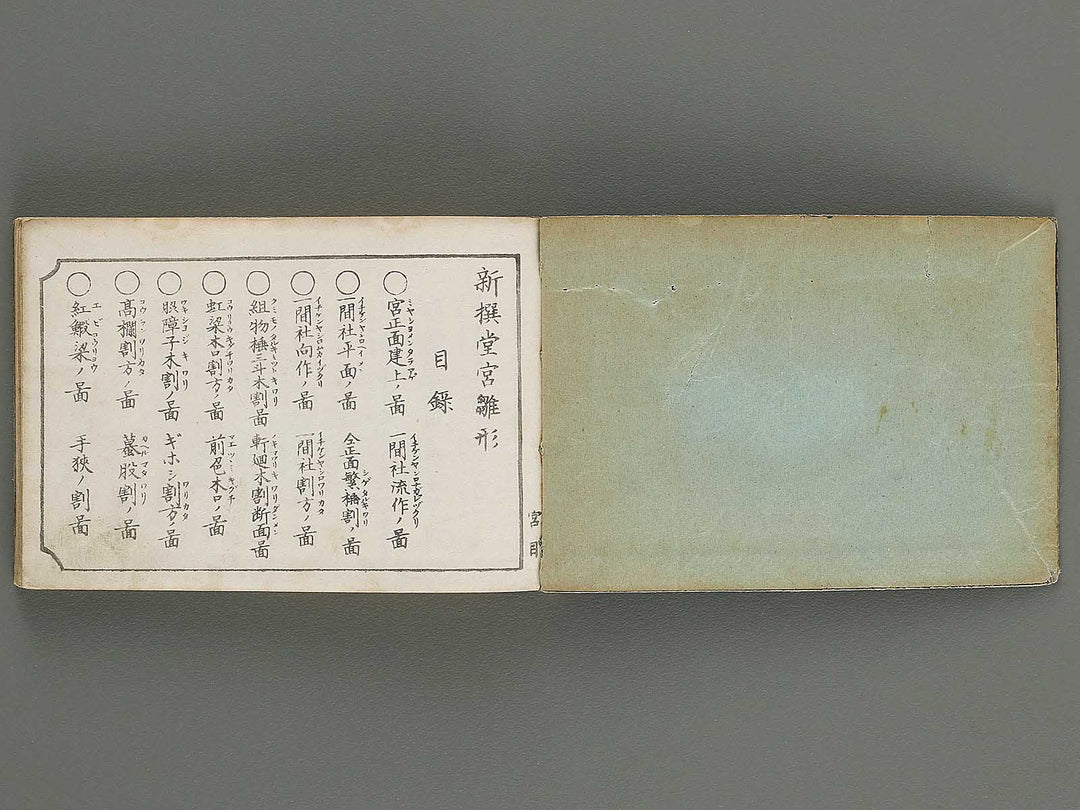 新撰堂宮雛形
目録
○宮正面建上ノ啚 一間社流作ノ啚
○一間社平面ノ啚 仝正面繁棰割ノ啚
○一間社向作ノ啚 一間社割方ノ啚
○組物棰三斗木割啚 軒廻木割断面啚
○虹梁木口割方ノ啚 前包木口ノ啚
○脇障子木割ノ啚 ギホシ割方ノ啚
○髙欄割方ノ啚 蟇股割ノ啚
○紅鰕梁ノ啚 手狹ノ割啚
宮